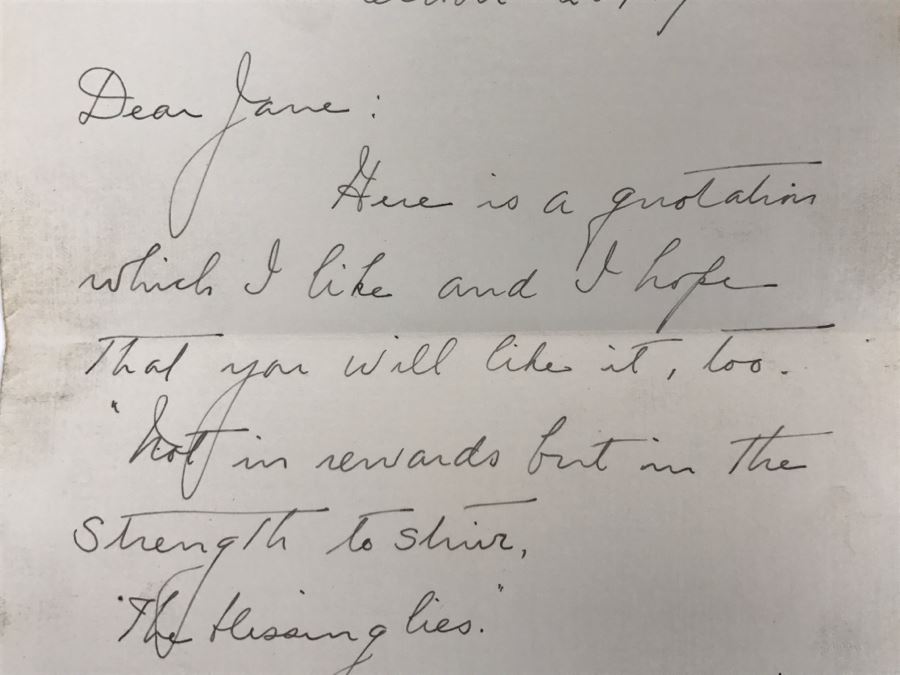 Dear Jane:
Here is a quotation
which I like and I hope
that you will like it, too.
"Not in rewards but in the
strength to strive,
"The blessing lies."